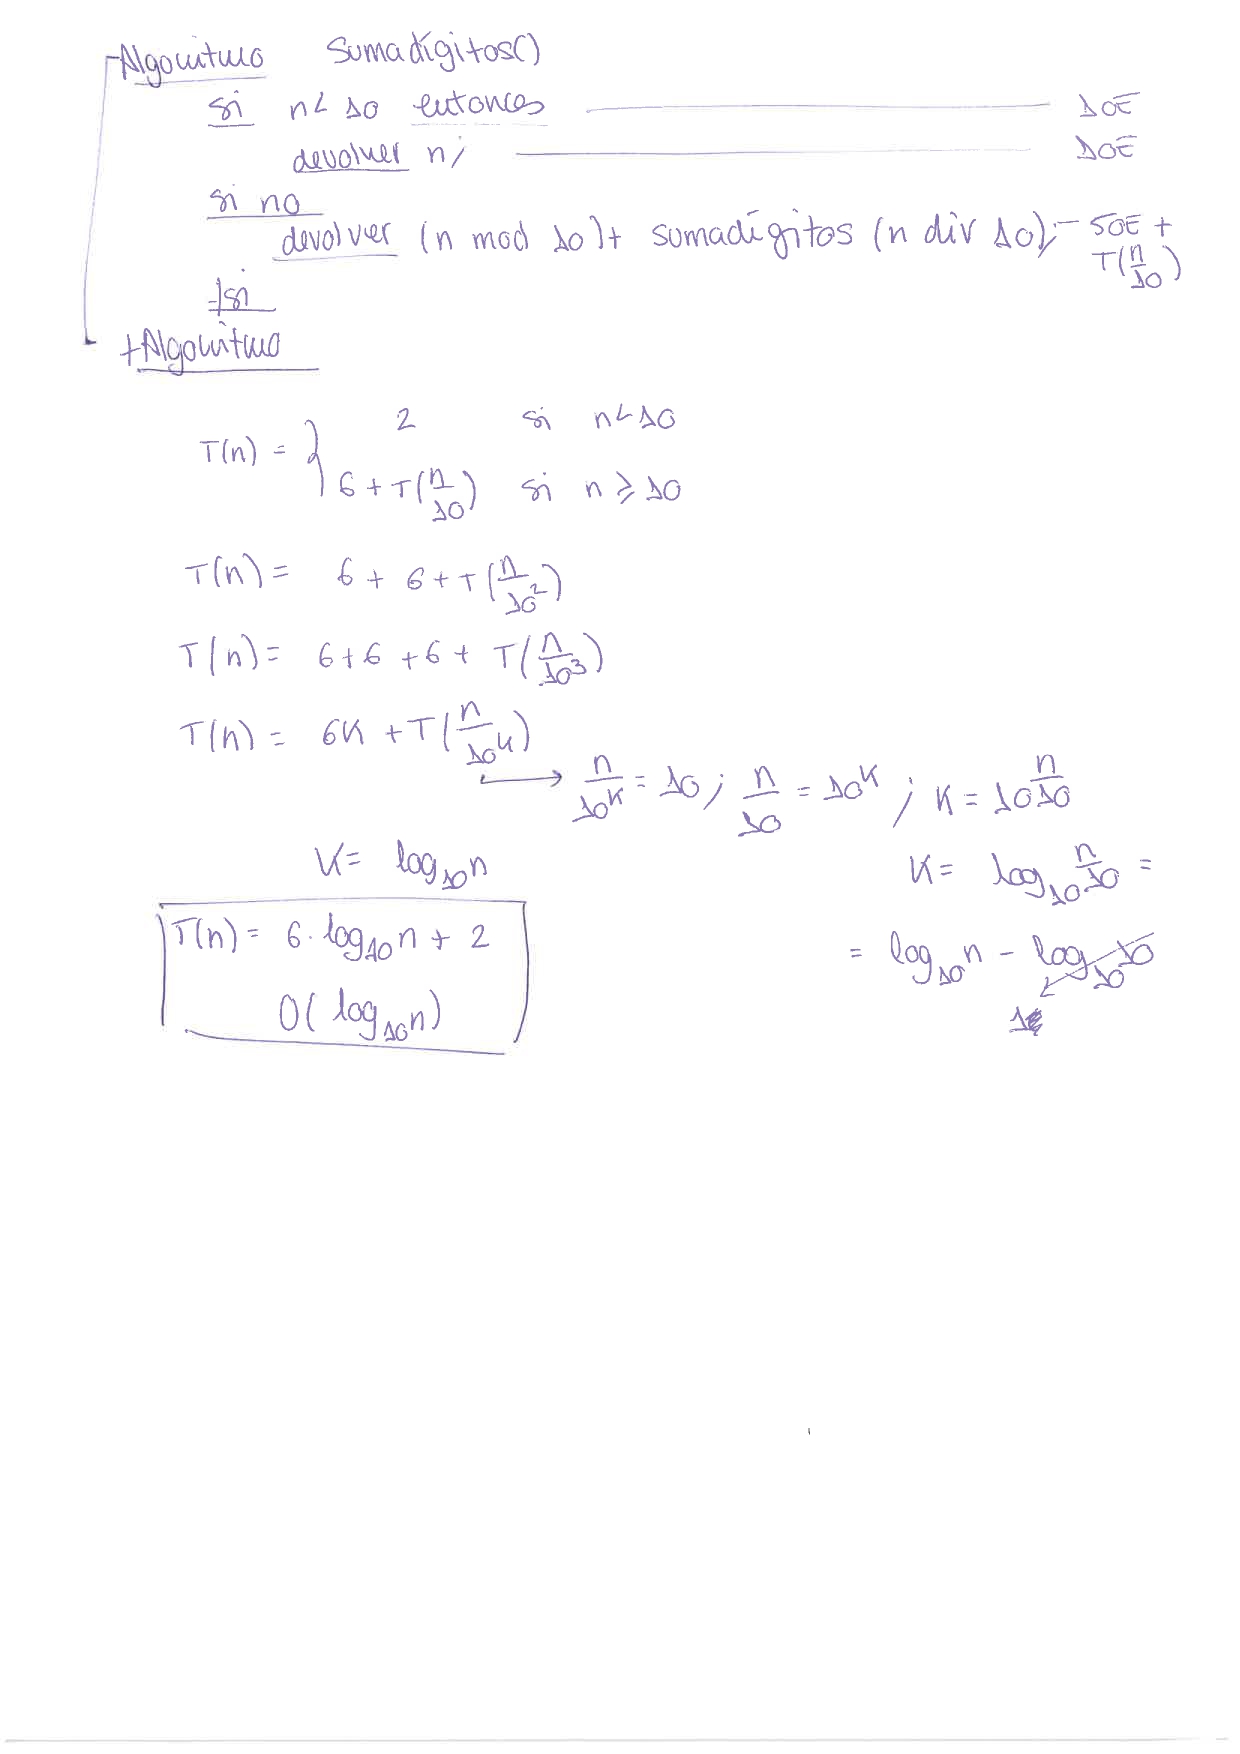 Algoritmo Sumadígitos()
si n< 10 entonces 1OE
devolver n; 1OE
si no
devolver (n mod 10)+ sumadígitos (n div 10); 5OE +
T(n/10)
fsi
fAlgoritmo
T(n) = { 2 si n<10
6 + T(n/10) si n ≥ 10
T(n) = 6 + 6 + T(n/10²)
T(n) = 6+6 +6 + T(n/10³)
T(n) = 6K + T(n/10^K)
→ n/10^K = 10 ; n/10 = 10^K ; K = 10^(n/10)
K = log₁₀n K = log₁₀ n/10 =
T(n) = 6 · log₁₀n + 2 = log₁₀n - log₁₀10
1
O( log₁₀n)